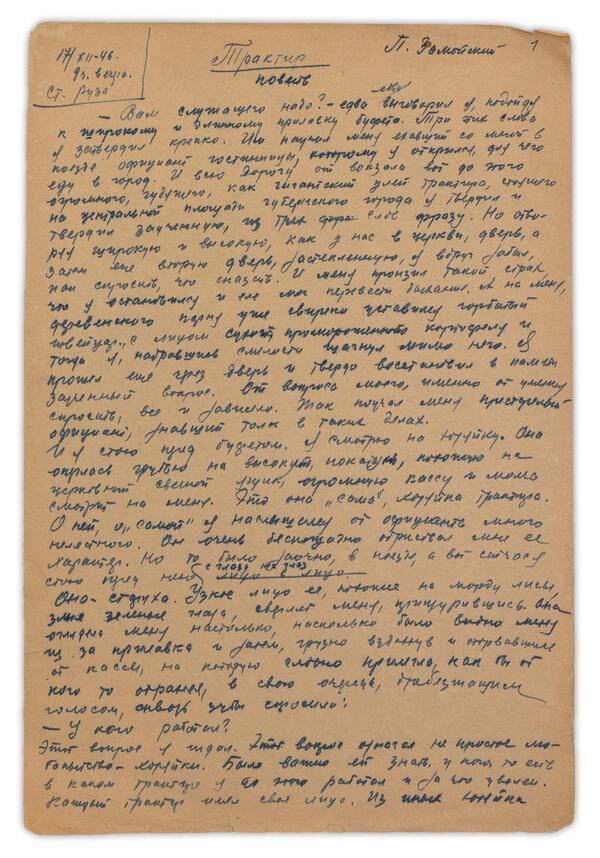 17/XII-46.
9ч. вечера.
Ст. Руза
П. Замойский
1
Трактир
повесть
едва
— Вам служащего надо? — едва выговорил я, подойдя
к широкому и длинному прилавку буфета. Три эти слова
я затвердил крепко. Им научил меня ехавший со мной в
поезде официант гостиницы, которому я открылся, для чего
еду в город. И всю дорогу от вокзала вот до этого
огромного, гудящего, как гигантский улей трактира, стоящего
на центральной площади губернского города я твердил и
твердил заученную, из трех слов фразу. Но отво-
рив широкую и высокую, как у нас в церкви, дверь, а
затем еще вторую дверь, застекленную, я вдруг забыл,
как спросить, что сказать. И меня пронзил такой страх,
что я остановился и не мог перевести дыхания. А на меня,
деревенского парня уже свирепо уставился горбатый
швейцар, с лицом промороженного картофеля и
тогда я, набравшись смелости шагнул мимо него. Я
прошел еще чрез дверь и твердо восстановил в памяти
заученный вопрос. От вопроса моего, именно от умения
спросить, все и зависело. Так поучал меня
официант, знавший толк в таких делах.
И я стою пред буфетом. Я смотрю на хозяйку. Она
оперлась грудью на высокую, покатую, похожую на
церковный свечной ящик, огромную кассу и молча
смотрит на меня. Это она „сама", хозяйка трактира.
О ней, о „самой" я наслышался от официанта много
нелестного. Он очень беспощадно обрисовал мне ее
характер. Но то было заочно, в поезде, а вот сейчас я
с глазу на глаз
стою пред нею лицо в лицо.
Она — стар­уха. Узкое лицо ее, похожее на морду лисы,
злые зеленые глаза, сверлят меня, прищурившись. Она
оглядела меня настолько, насколько было видно меня
из за прилавка и затем, грузно вздохнув и оторвавшись
от кассы, на которую словно прилегла, как бы от
кого то охраняя, в свою очередь, дребезжащим
голосом, сквозь зубы спросила:
— У кого работал?
Этот вопрос я ждал. Этот вопрос означал не простое лю-
бопытство хозяйки. Было важно ей знать, у кого, то есть
в каком трактире я до этого работал и за что уволен.
Каждый трактир имел свое лицо. Из иных хозяйка